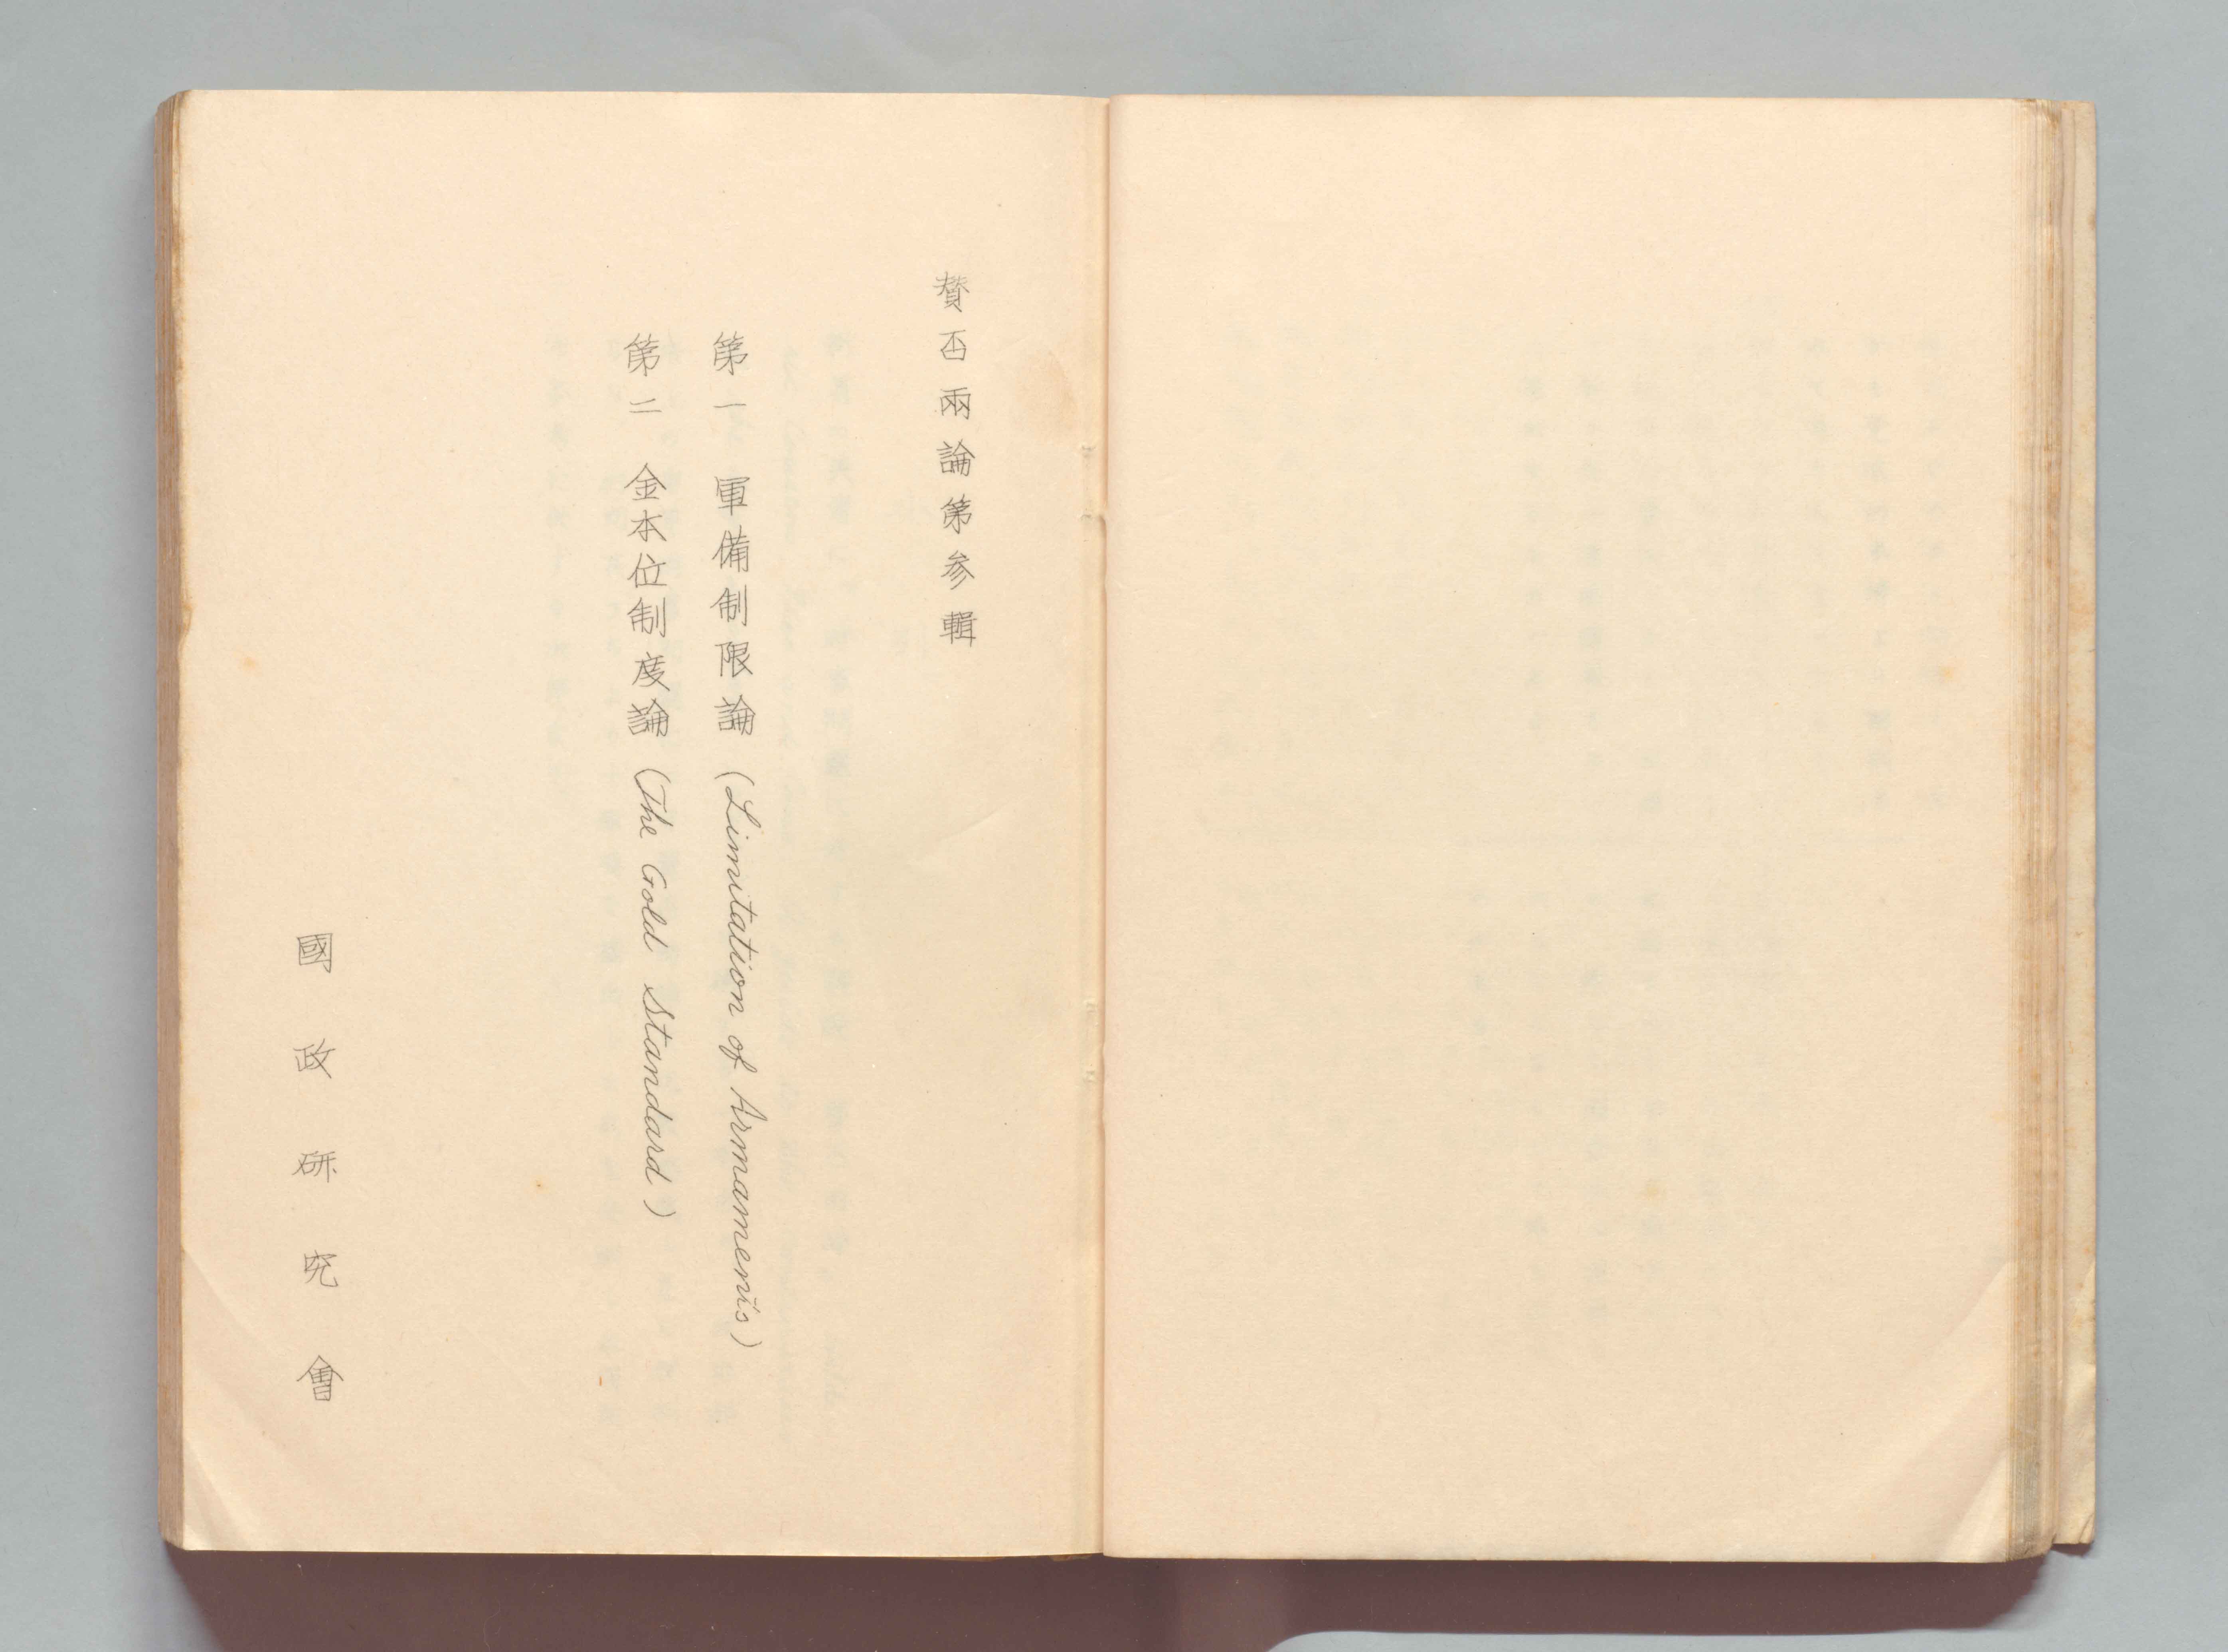 賛否兩論第参輯
第一 軍備制限論 (Limitation of Armaments)
第二 金本位制度論 (The Gold Standard)
國政研究會